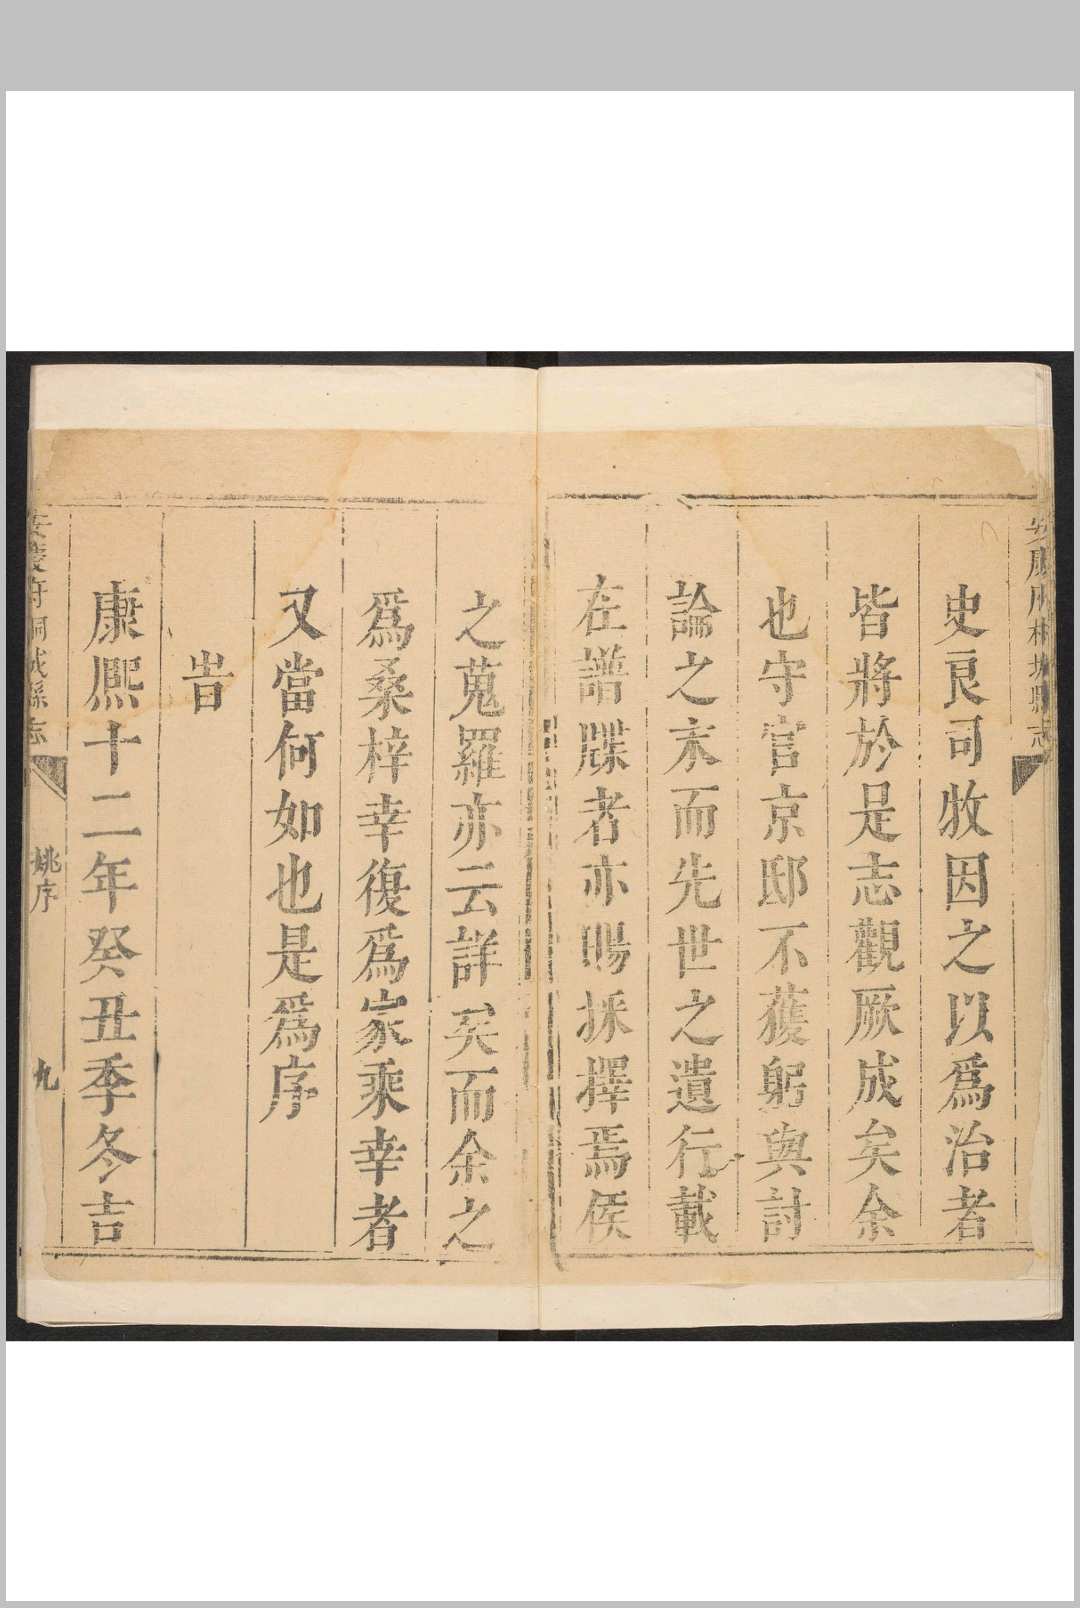 安慶府桐城縣志
史良司牧因之以爲治者
皆將於是志觀厥成矣余
也守官京邸不獲躬與討
論之末而先世之遺行載
在譜牒者亦賜採擇焉俟
之蒐羅亦云詳矣而余之
爲桑梓幸復爲家乘幸者
又當何如也是爲序
旹
康熙十二年癸丑季冬吉
安慶府桐城縣志
姚序
九